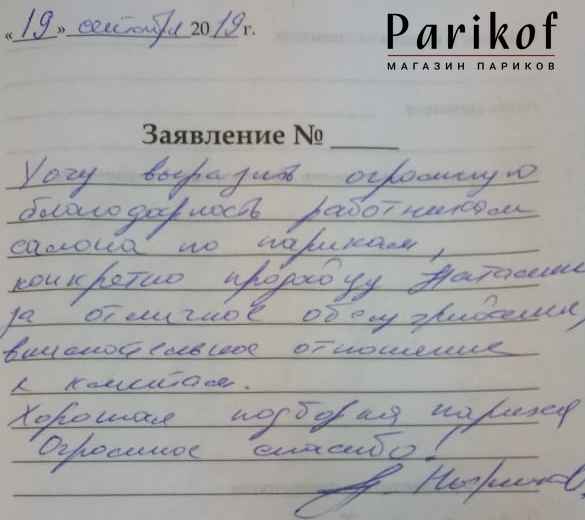 Parikof
МАГАЗИН ПАРИКОВ
«19» сентября 2019 г.
Заявление № ____
Хочу выразить огромную
благодарность работникам
салона по парикам,
конкретно продавцу Наталии
за отличное обслуживание,
внимательное отношение
к клиентам.
Хорошая подборка париков
Огромное спасибо!